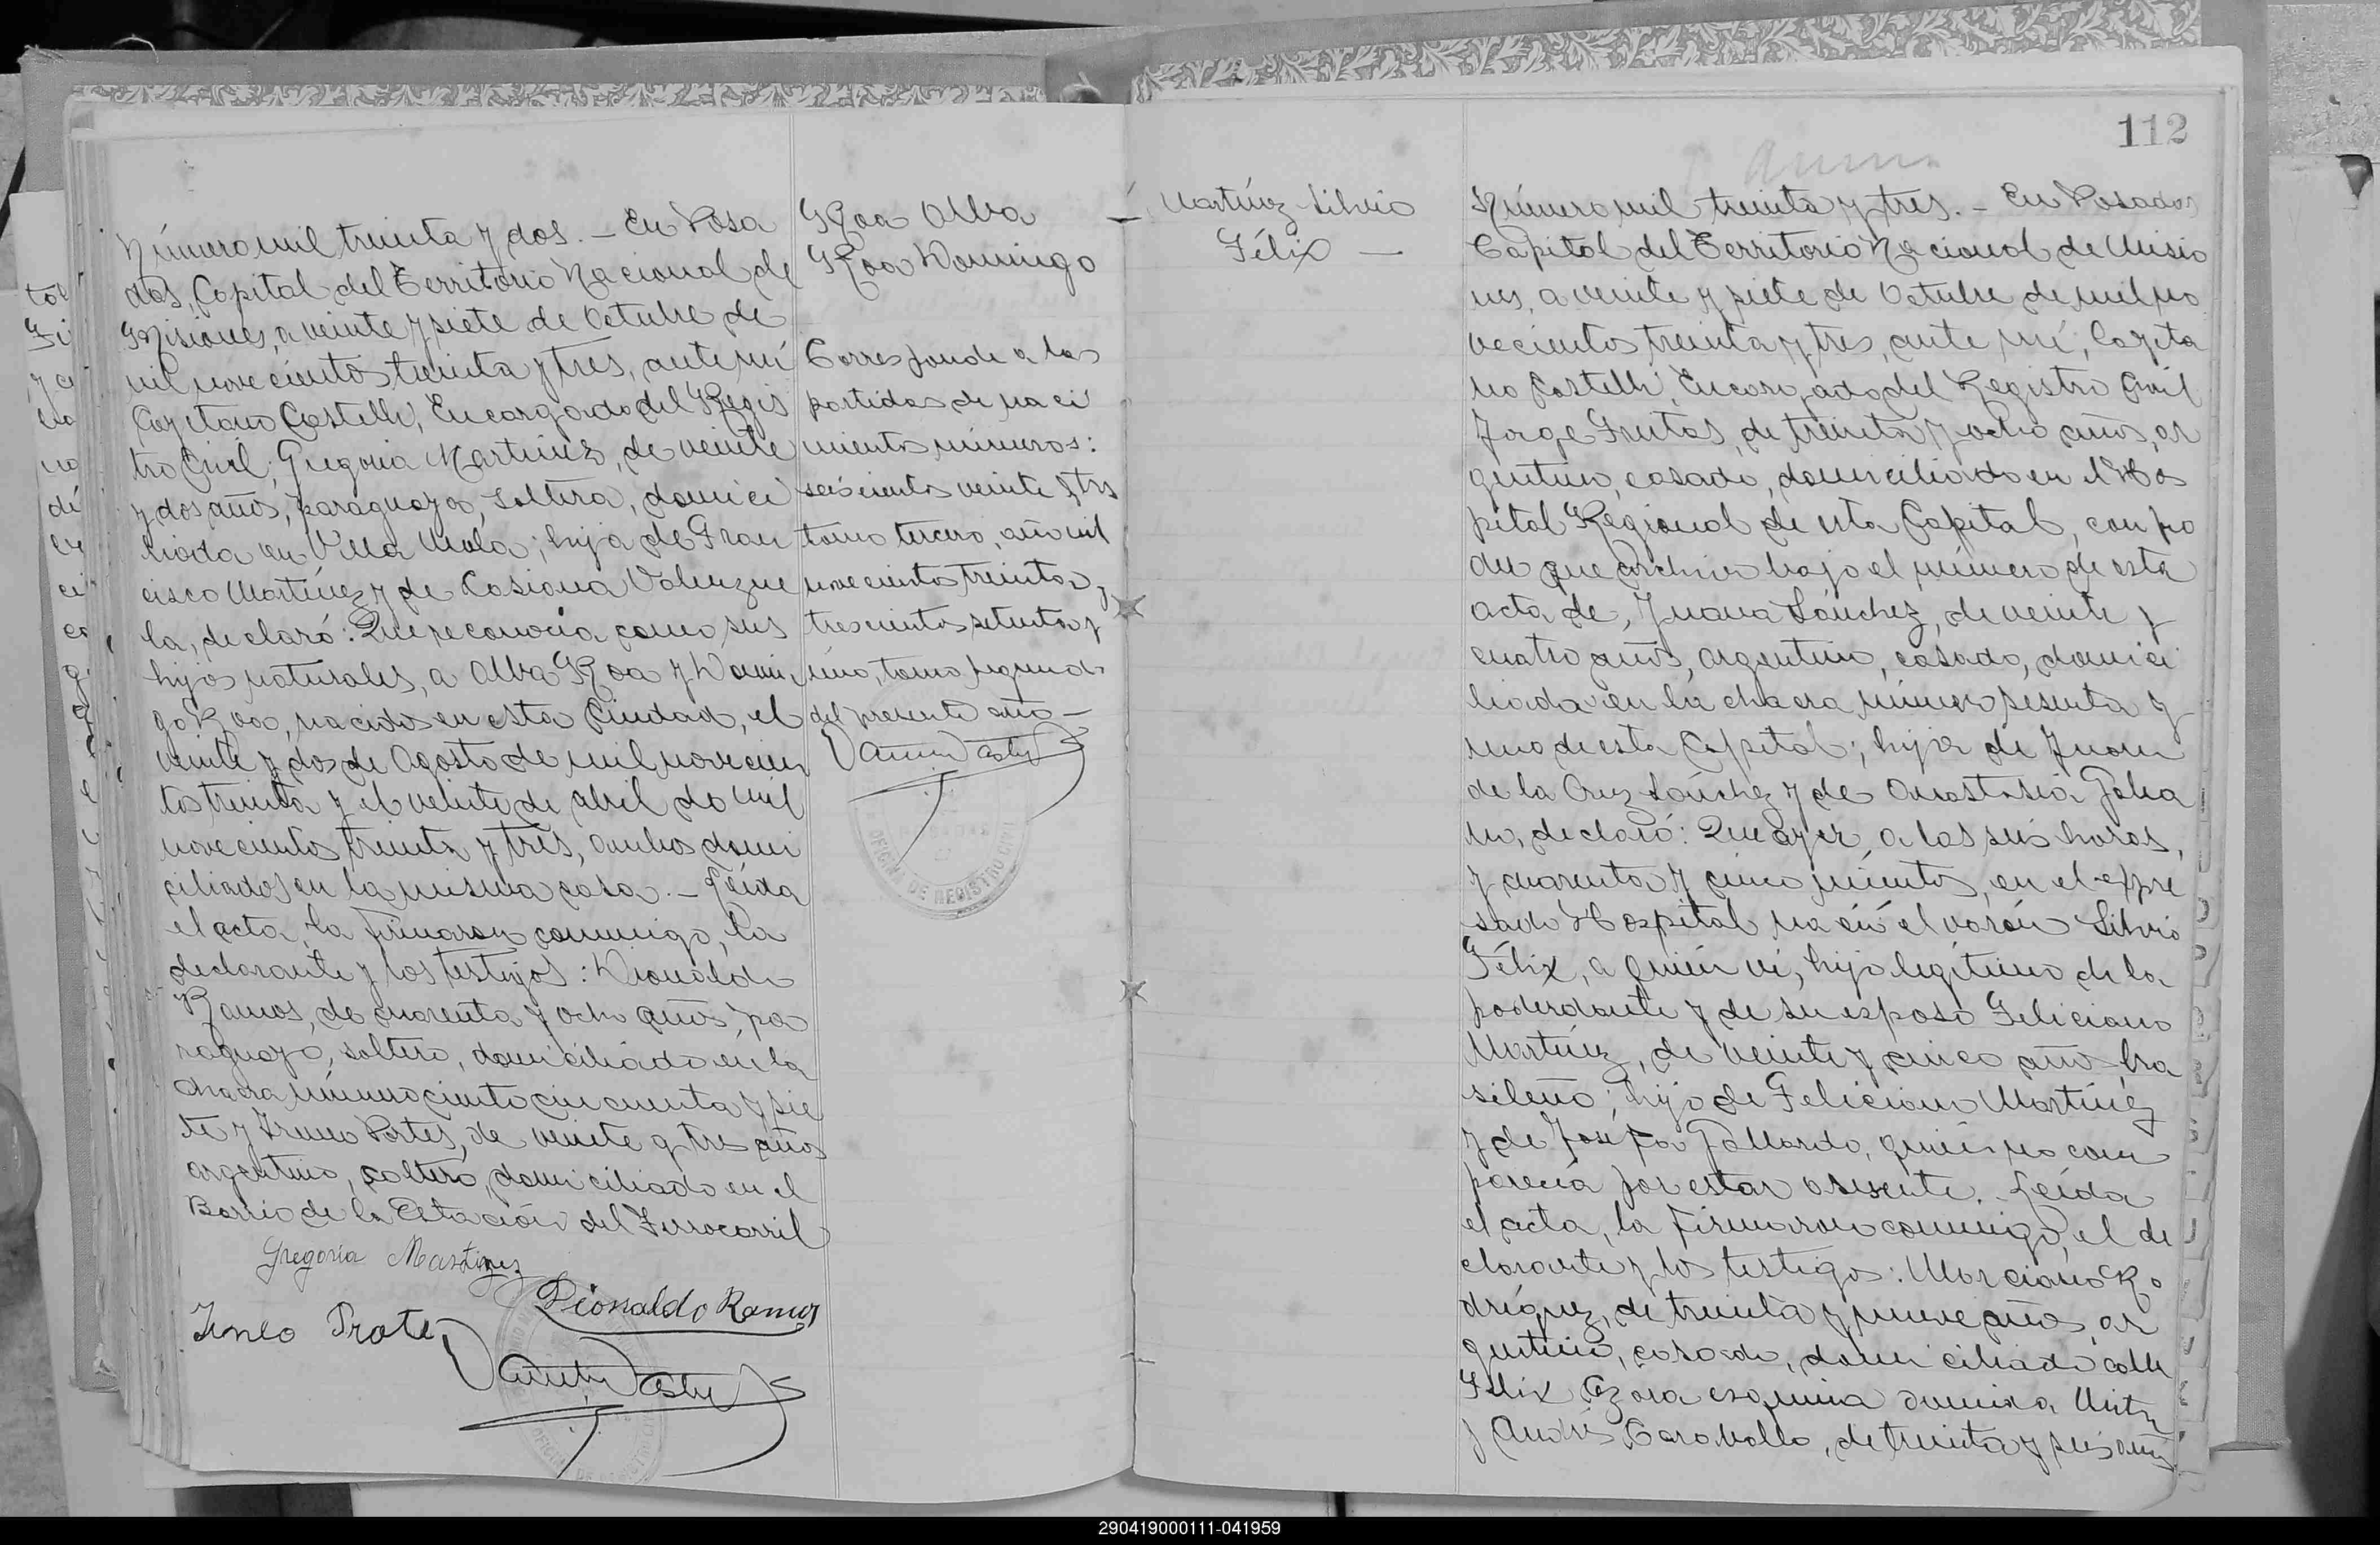 Número mil treinta y dos. — En Posa
das, Capital del Territorio Nacional de
Misiones, a veinte y siete de Octubre de
mil novecientos treinta y tres, ante mí
Cayetano Castelli, Encargado del Regis
tro Civil; Gregoria Martínez, de veinte
y dos años, paraguaya, soltera, domici
liada en Villa Mola; hija de Fran
cisco Martínez y de Casiana Valenzue
la, declaró: Que reconocía como sus
hijos naturales, a Alba Roa y Domin
go Roa, nacidos en esta Ciudad, el
veinte y dos de Agosto de mil novecien
tos treinta y el veinte de abril de mil
novecientos treinta y tres, ambos domi
ciliados en la misma casa. — Leída
el acta, la firmaron conmigo, la
declarante y los testigos: Dionaldo
Ramos, de cuarenta y ocho años, pa
raguayo, soltero, domiciliado en la
chacra número ciento cincuenta y sie
te y Ireneo Portes, de veinte y tres años
argentino, soltero, domiciliado en el
Barrio de la Estación del Ferrocarril
Gregoria Martinez
Dionaldo Ramos
Roa Alba
Roa Domingo
Corresponde a las
partidas de naci
miento números:
seiscientos veinte y tres
tomo tercero, año mil
novecientos treinta y
trescientos setenta y
uno, tomo segundo
del presente año —
OFICINA DE REGISTRO CIVIL
Martínez Silvio
Félix —
112
Número mil treinta y tres. — En Posadas
Capital del Territorio Nacional de Misio
nes, a veinte y siete de Octubre de mil no
vecientos treinta y tres, ante mí, Cayeta
no Castelli, Encargado del Registro Civil
Jorge Frutos, de treinta y ocho años, ar
gentino, casado, domiciliado en el Hos
pital Regional de esta Capital, con po
der que archivo bajo el número de esta
acta de, Juana Sánchez, de veinte y
cuatro años, argentina, casada, domici
liada en la chacra número sesenta y
uno de esta Capital; hija de Juan
de la Cruz Sánchez y de Anastasia
declaró: Que ayer, a las seis horas,
y cuarenta y cinco minutos, en el expre
sado Hospital nació el varón Silvio
Félix, a quién ví, hijo legítimo de la
poderdante y de su esposo Feliciano
Martínez, de veinte y cinco años bra
sileño; hijo de Feliciano Martínez
y de Josefa Gallardo, quién no com
parecía por estar ausente. — Leída
el acta, la firmaron conmigo, el de
clarante y los testigos: Marciano Ro
dríguez, de treinta y nueve años, ar
gentino, casado, domiciliado calle
Félix Azara esquina
y Andrés Caraballo, de treinta y seis años
290419000111-041959